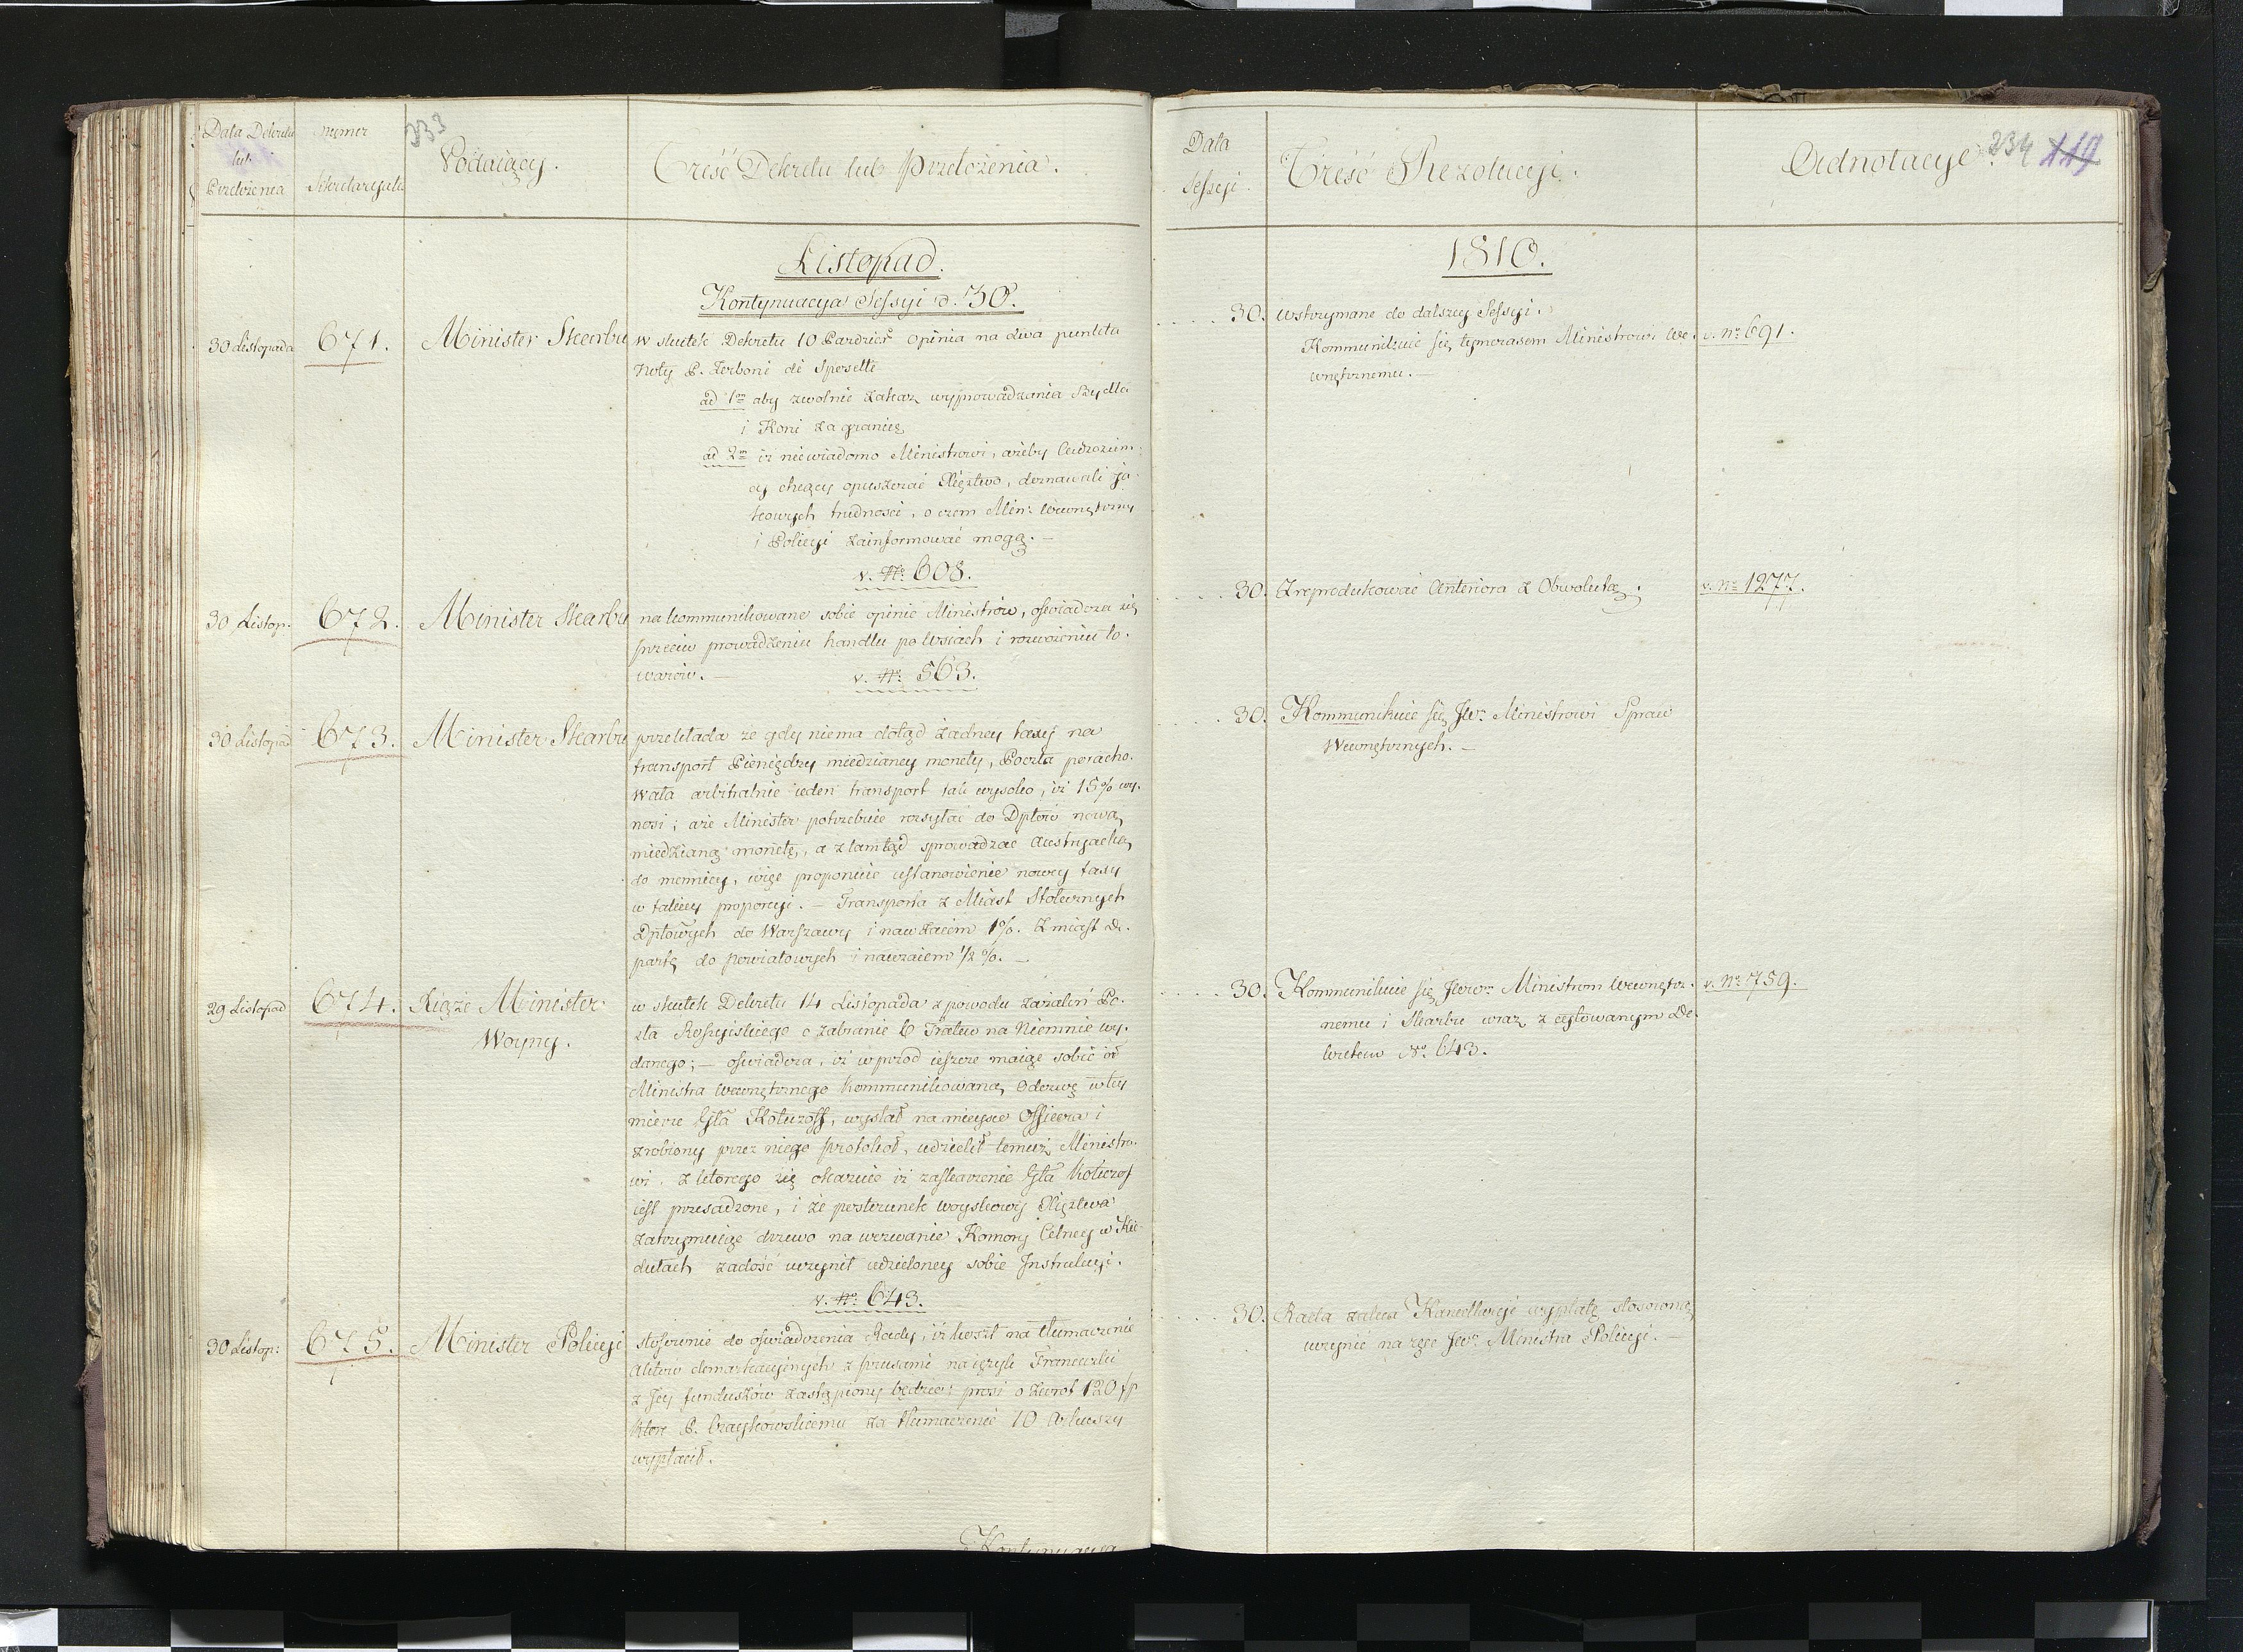 Data Dekretu
lub
Przełożenia
Numer
Sekretaryatu
333
Podaiący.
Treść Dekretu lub Przełożenia.
Listopad.
Kontynuacya Sessyi d. 30.
30 Listopada
671.
Minister Skarbu
w skutek Dekretu 10 Paździer. Opinia na dwa punkta
Noty P. Zerboni di Sposetti
ad 1m aby zwolnić zakaz wyprowadzania Bydła
i Koni za granicę
ad 2m iż niewiadomo Ministrowi, ażeby Cudzoziem-
cy chcący opuszczać Xięztwo, doznawali ja-
kowych trudności, o czem Min: Wewnętrzny
i Policyi zainformować mogą. —
v. No: 608.
30 Listop.
672.
Minister Skarbu
na kommunikowane sobie opinie Ministrów, oświadcza się
przeciw prowadzeniu handlu po Wsiach i rozwożeniu to-
warów. —
v. No: 563.
30 Listopad
673.
Minister Skarbu
przekłada że gdy niema dotąd żadney taxy na
transport Pieniędzy miedzianey monety, Poczta poracho-
wała arbitralnie ieden transport tak wysoko, iż 15% wy-
nosi; a że Minister potrzebuie rozsyłać do Dptów nową
miedzianą monetę, a z tamtąd sprowadzać Austryacką
do mennicy, więc proponuie ustanowienie nowey taxy
w takiey proporcyi. — Transporta z Miast Stołecznych
Dptowych do Warszawy i nawzaiem 1%. Z miast De-
partę do powiatowych i nawzaiem 1/2 %. —
29 Listopad
674.
Xiąże Minister
Woyny.
w skutek Dekretu 14 Listopada z powodu zażaleń Po-
sła Rossyiskiego o zabranie 6 Tratew na Niemnie wy-
danego; — oświadcza, iż wprzod ieszcze maiąc sobie od
Ministra Wewnętrznego kommunikowaną Odezwę w tey
mierze Gła Kotuzoff, wysłał na mieysce Officera i
zrobiony przez niego protokoł, udzielił temuż Ministro-
wi, z ktorego się okazuie iż zaskarzenie Gła Kotuzof
iest przesadzone, i że posterunek woyskowy Xięztwa
zatrzymuiąc drzewo na wezwanie Komory Celney w Kie-
dułach zadość uczynił udzieloney sobie Instrukcyi.
v. No: 643.
30 Listop:
675.
Minister Policyi
stosownie do oświadczenia Rady, iż koszt na tłumaczenie
Aktow demarkacyinych z Prusami na ięzyk Francuzki
z Jey funduszów zastąpiony będzie; prosi o zwrot 120 fp
ktore P. za tłumaczenie 10 Arkuszy
wypłacił.
Kontynuacya
Data
Sessyi
Treść Rezolucyi.
Adnotacye.
334
119
1810.
30. wstrzymane do dalszey Sessyi.
Kommunikuie się tymczasem Ministrowi We-
wnętrznemu. —
v. No: 691.
30. Zreprodukować Anteriora z Obwolutą.
v. No: 1277.
30. Kommunikuie się Jw: Ministrowi Spraw
Wewnętrznych. —
30. Kommunikuie się Jww: Ministrom Wewnętrz-
nemu i Skarbu wraz z cytowanym De-
kretem No: 643.
v. No: 759.
30. Rada zaleca Kancellaryi wypłatę stosowną
uczynić na ręce Jw: Ministra Policyi. —